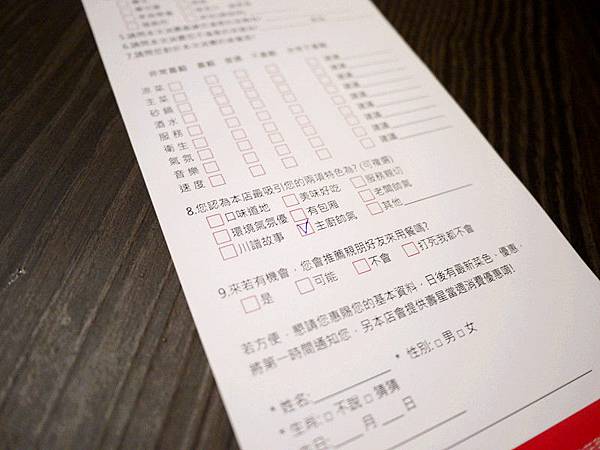 5.請問
6.請問
7.請問
非常喜歡 喜歡 普通 不喜歡
涼菜 □ □ □ □ □ 建議
主菜 □ □ □ □ □ 建議
砂鍋 □ □ □ □ □ 建議
酒水 □ □ □ □ □ 建議
服務 □ □ □ □ □ 建議
衛生 □ □ □ □ □ 建議
氣氛 □ □ □ □ □ 建議
音樂 □ □ □ □ □ 建議
速度 □ □ □ □ □ 建議
8.您認為本店最吸引您的兩項特色為?(可複選)
□口味道地 □美味好吃 □服務親切
□環境氣氛優 □有包廂 □老闆帥氣
□川譜故事 ☑主廚帥氣 □其他
9.來若有機會，您會推薦親朋好友來用餐嗎?
□是 □可能 □不會 □打死我都不會
若方便，懇請您惠賜您的基本資料，日後有最新菜色、優惠，
將第一時間通知您，另本店會提供壽星當週消費優惠唷!
*姓名: *性別:□男□女
*生肖:□不說□猜猜
生日: 月 日